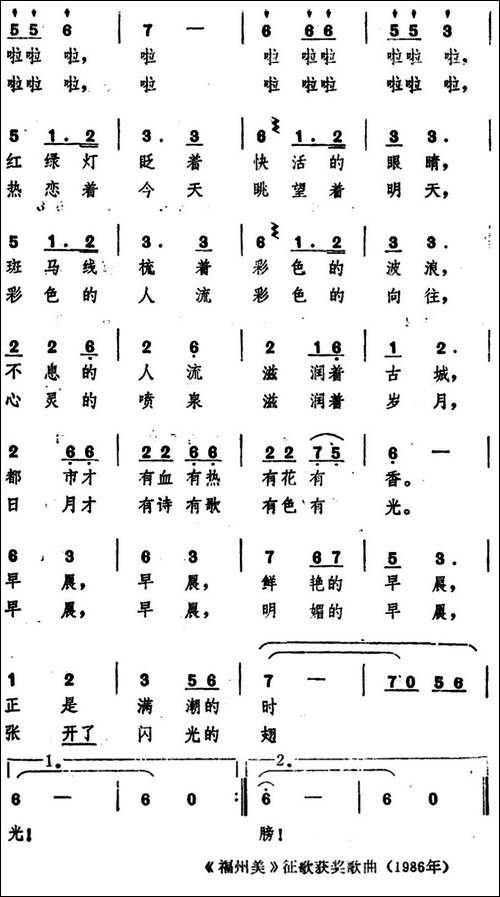 5 5 6 | 7 — | 6 6 6 | 5 5 3
啦啦 啦, 啦 啦 啦啦 啦啦 啦,
啦啦 啦, 啦 啦 啦啦 啦啦 啦,
5 1. 2 | 3. 3 | 6 1. 2 | 3 3.
红 绿 灯 眨 着 快 活 的 眼 睛,
热 恋 着 今 天 眺 望 着 明 天,
5 1. 2 | 3. 3 | 6 1. 2 | 3 3.
斑 马 线 梳 着 彩 色 的 波 浪,
彩 色 的 人 流 彩 色 的 向 往,
2 2 6 | 2 6 | 2 1 6 | 1 2.
不 息 的 人 流 滋 润着 古 城,
心 灵 的 喷 泉 滋 润着 岁 月,
2 6 6 | 2 2 6 6 | 2 2 7 5 | 6 —
都 市才 有血 有热 有花 有 香。
日 月才 有诗 有歌 有色 有 光。
6 3 | 6 3 | 7 6 7 | 5 3.
早 晨, 早 晨, 鲜 艳的 早 晨,
早 晨, 早 晨, 明 媚的 早 晨,
1 2 | 3 5 6 | 7 — | 7 0 5 6
正 是 满 潮的 时
张 开了 闪 光的 翅
1. 2.
6 — | 6 0 :‖ 6 — | 6 0 ‖
光! 膀!
《福州美》征歌获奖歌曲 (1986年)